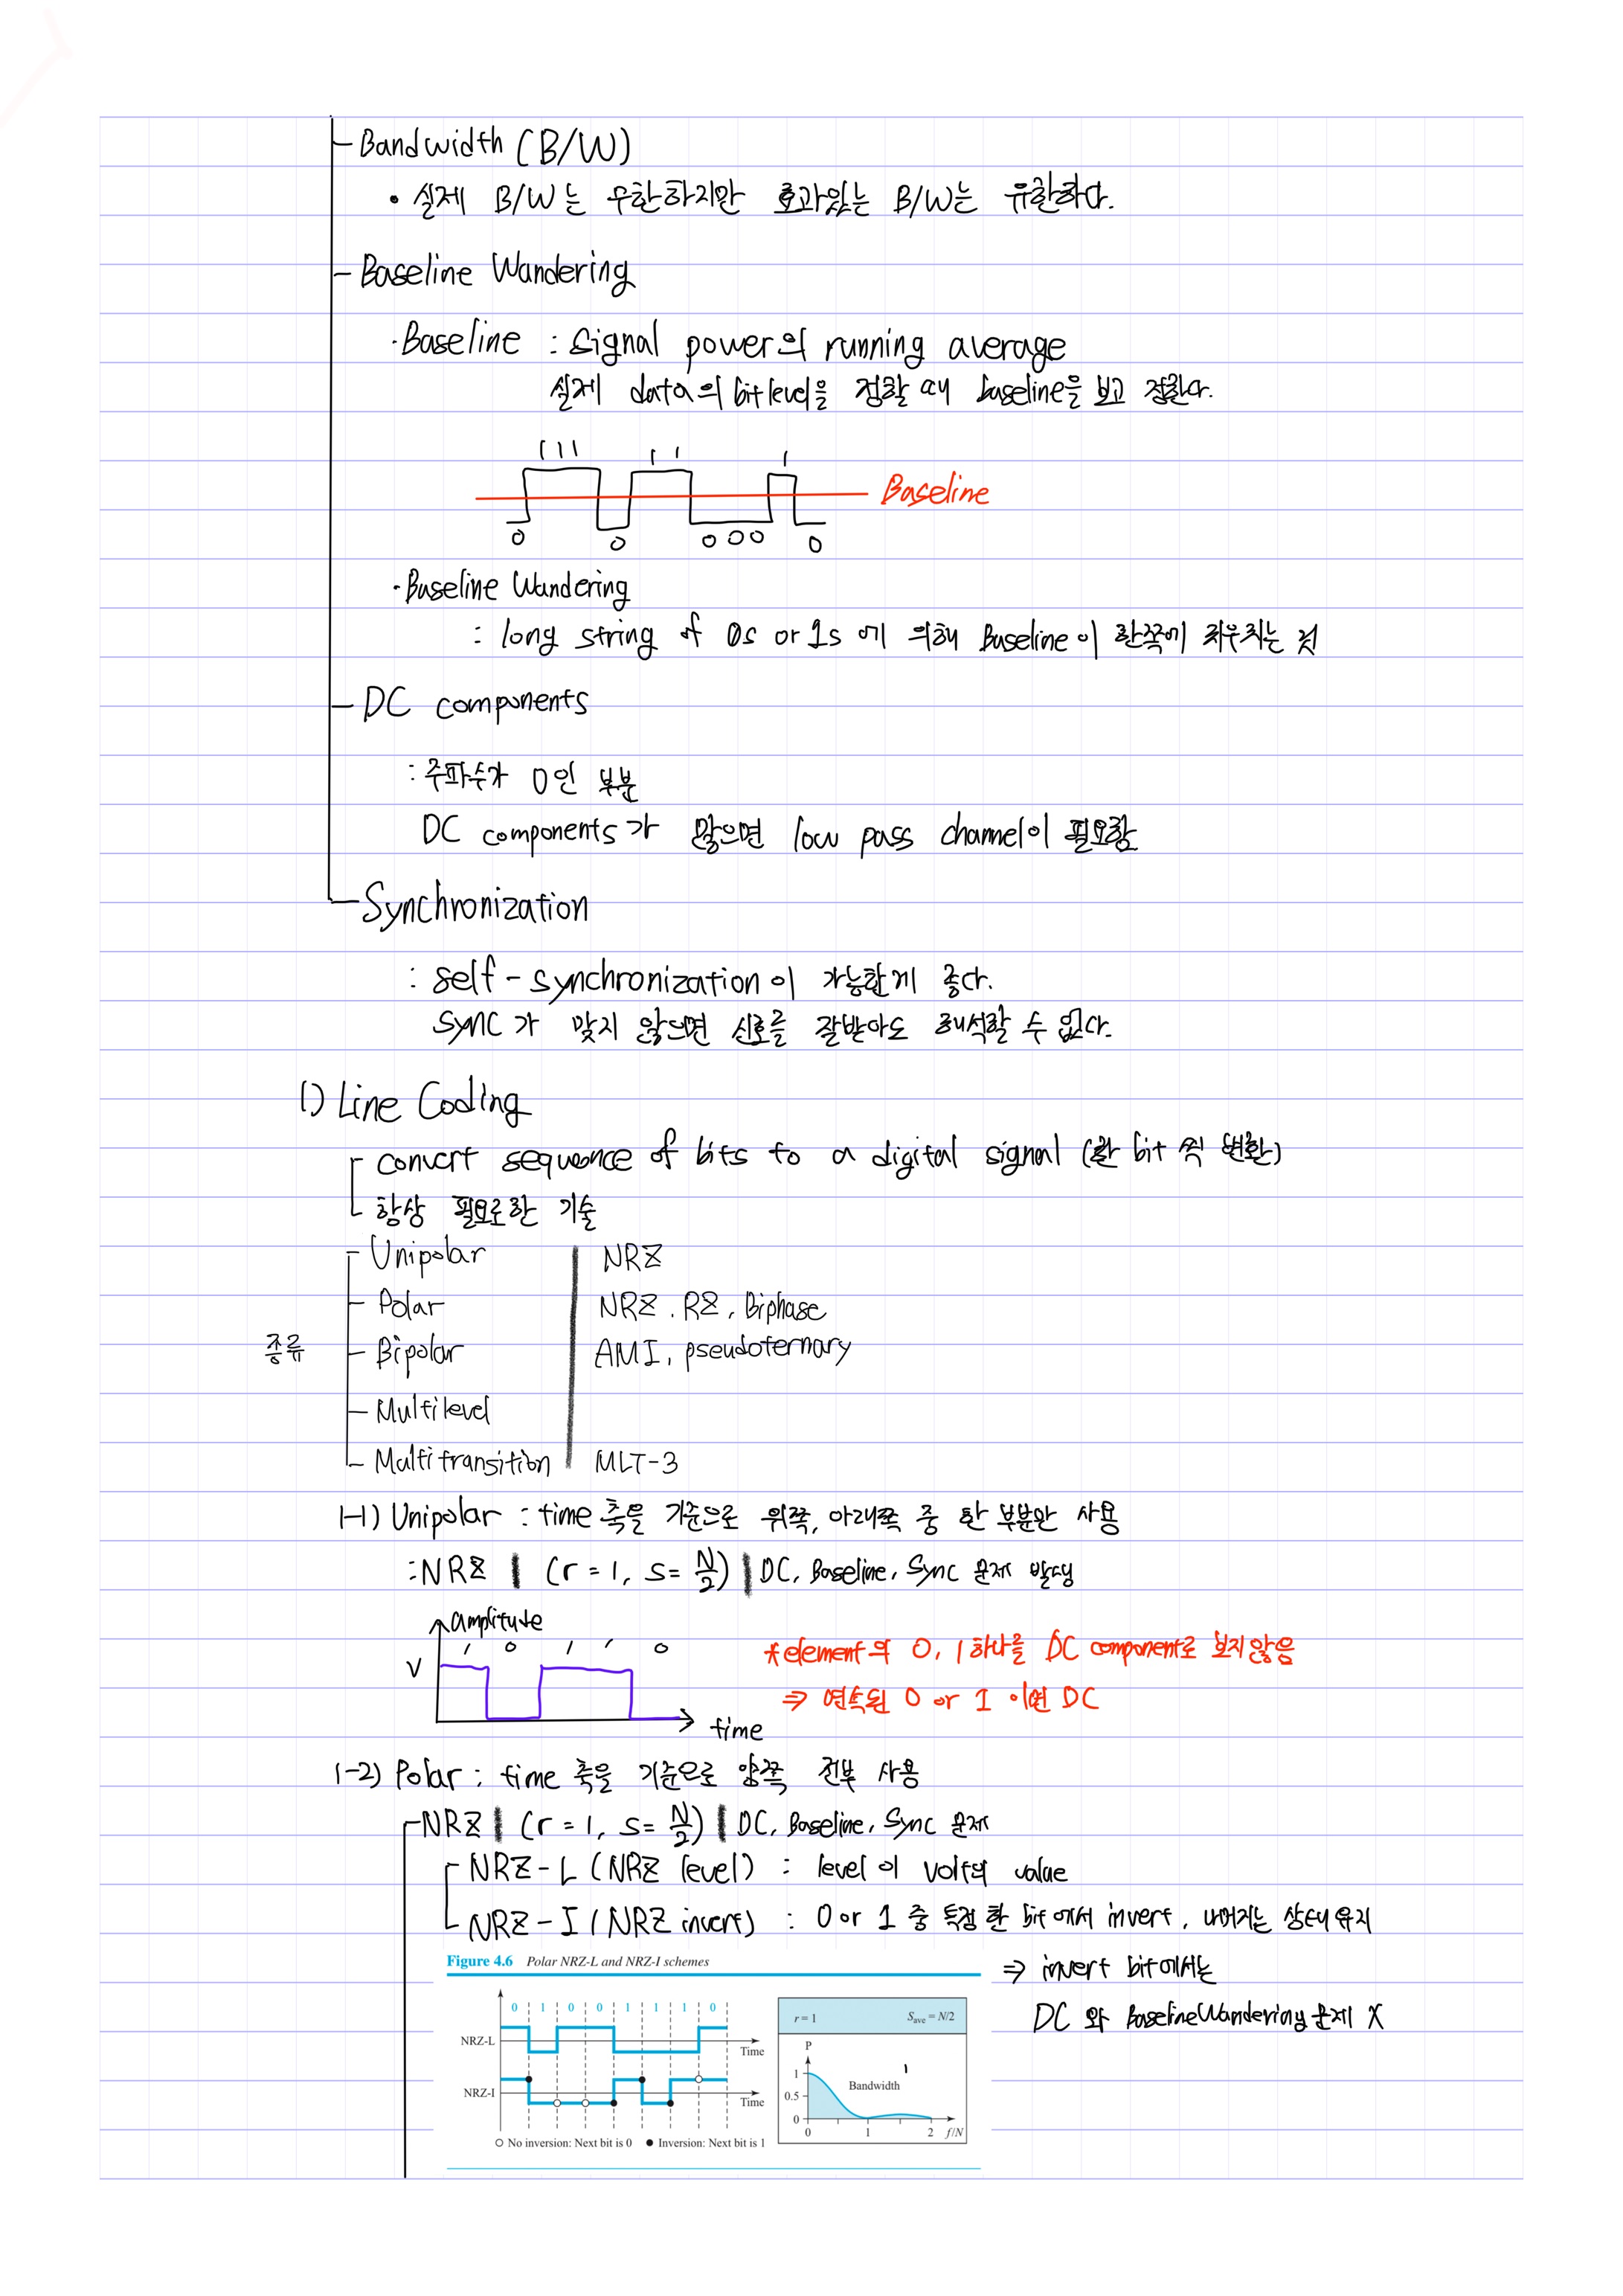 Bandwidth (B/W)
• 실제 B/W는 무한하지만 효과있는 B/W는 유한하다.
Baseline Wandering
·Baseline : Signal power의 running average
실제 data의 bit level을 정할 때 baseline을 보고 정한다.
1 1 1 1 1 1
Baseline
0 0 0 0 0 0
·Baseline Wandering
: long string of 0s or 1s 에 의해 Baseline이 한쪽에 치우치는 것
DC components
: 주파수가 0인 부분
DC components가 많으면 low pass channel이 필요함
Synchronization
: self-synchronization이 가능한게 좋다.
sync가 맞지 않으면 신호를 잘받아도 해석할 수 없다.
1) Line Coding
convert sequence of bits to a digital signal (한 bit 씩 변환)
항상 필요로한 기술
Unipolar NRZ
Polar NRZ. RZ, Biphase
종류 Bipolar AMI, pseudoternary
Multilevel
Multitransition MLT-3
1-1) Unipolar : time 축을 기준으로 위쪽, 아래쪽 중 한 부분만 사용
:NRZ | (r = 1, s = N/2) | DC, Baseline, Sync 문제 발생
amplitude
1 0 1 1 0
V
*element의 0, 1하나를 DC component로 보지않음
⇒ 연속된 0 or 1 이면 DC
time
1-2) Polar : time 축을 기준으로 양쪽 전부 사용
NRZ | (r = 1, s = N/2) | DC, Baseline, Sync 문제
NRZ-L (NRZ level) : level이 volt의 value
NRZ-I (NRZ invert) : 0 or 1 중 특정 한 bit에서 invert, 나머지는 상태유지
Figure 4.6 Polar NRZ-L and NRZ-I schemes
⇒ invert bit에서는
DC 와 BaselineWandering문제 X
0 1 0 0 1 1 1 0
r = 1 Save = N/2
NRZ-L
Time
P
1
Bandwidth
0.5
0
NRZ-I
Time
0 1 2 f/N
○ No inversion: Next bit is 0 ● Inversion: Next bit is 1